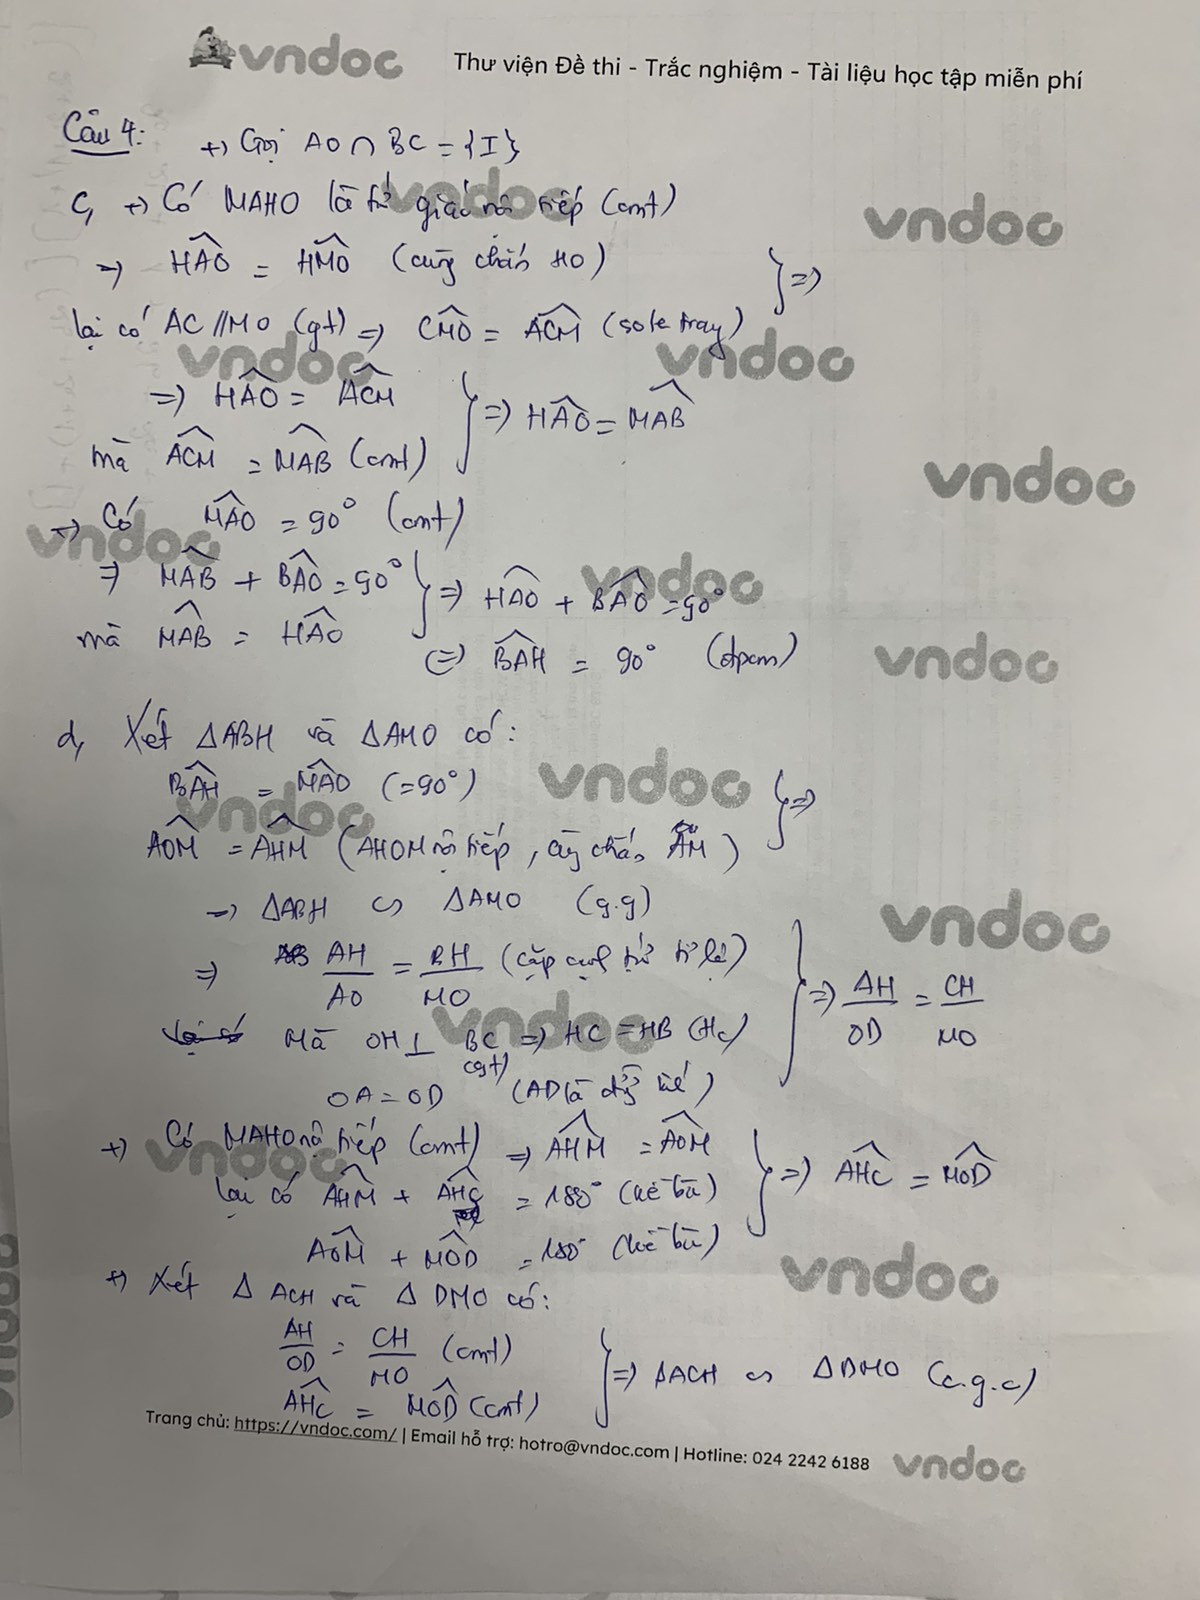 vndoc Thư viện Đề thi - Trắc nghiệm - Tài liệu học tập miễn phí
Câu 4: +) Gọi AO ∩ BC = {I}
c, +) Có MAHO là tứ giác nội tiếp (cmt)
=> HAO = HMO (cùng chắn HO) } =>
lại có AC // MO (gt) => CMO = ACM (so le trong)
=> HAO = ACM } => HAO = MAB
mà ACM = MAB (cmt)
+) Có MAO = 90° (cmt)
=> MAB + BAO = 90° } => HAO + BAO = 90°
mà MAB = HAO
(=) BAH = 90° (đpcm)
d, Xét ΔABH và ΔAMO có:
BAH = MAO (=90°) } =>
AOM = AHM (AHOM nội tiếp, cùng chắn AM)
=> ΔABH ∽ ΔAMO (g.g)
=> AH/AO = BH/MO (cặp cạnh tứ tỉ lệ) } => AH/OD = CH/MO
Mà OH ⊥ BC (gt) => HC = HB (Hc)
OA = OD (AD là đg kính)
+) Có MAHO nội tiếp (cmt) => AHM = AOM } => AHC = MOD
lại có AHM + AHC = 180° (kề bù)
AOM + MOD = 180° (kề bù)
+) Xét Δ ACH và Δ DMO có:
AH/OD = CH/MO (cmt) } => ΔACH ∽ ΔDMO (c.g.c)
AHC = MOD (cmt)
Trang chủ: https://vndoc.com/ | Email hỗ trợ: hotro@vndoc.com | Hotline: 024 2242 6188